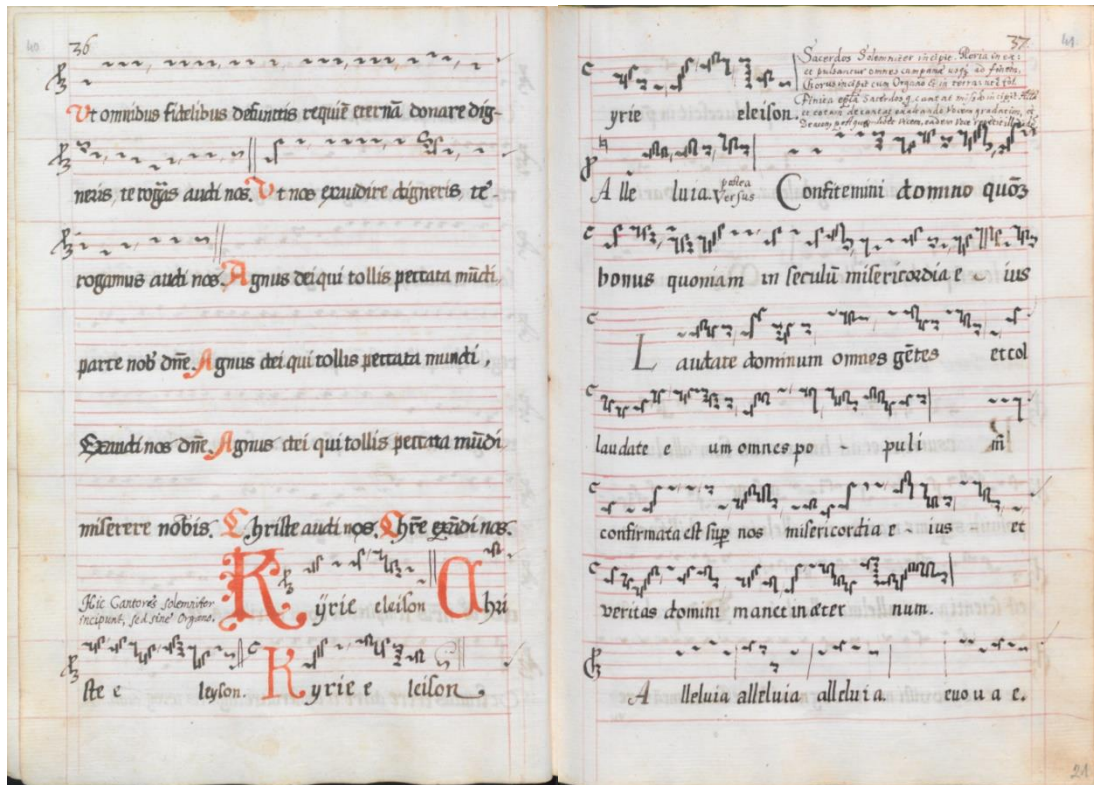 40
36
Vt omnibus fidelibus defunctis requiẽ eternã donare dig-
neris, te rogam͛ audi nos. Vt nos exaudire digneris, te
rogamus audi nos. Agnus dei qui tollis peccata mũdi,
parce nob̛ dñe. Agnus dei qui tollis peccata mundi,
Exaudi nos dñe. Agnus dei qui tollis peccata mũdi
miserere nobis. Christe audi nos. Chr̃e exaudi nos.
Hic Cantores solemniter
incipiunt, sed sine Organo.
Kÿrie eleison Chri
ste e leyson. Kyrie e leison.
37
41
Sacerdos Solemniter incipit. Gloria in ex:
et pulsantur omnes campanæ usq₃ ad finem.
Chorus incipit cum Organo Et in terra
yrie eleison.
Alle luia. postea Versus Confitemini domino quoñ
bonus quoniam in seculũ misericordia e ius
Laudate dominum omnes gẽtes et col
laudate e um omnes po puli
confirmata est sup̱ nos misericordia e ius et
veritas domini manet in æter num.
Alleluia alleluia alleluia. euouae.
21